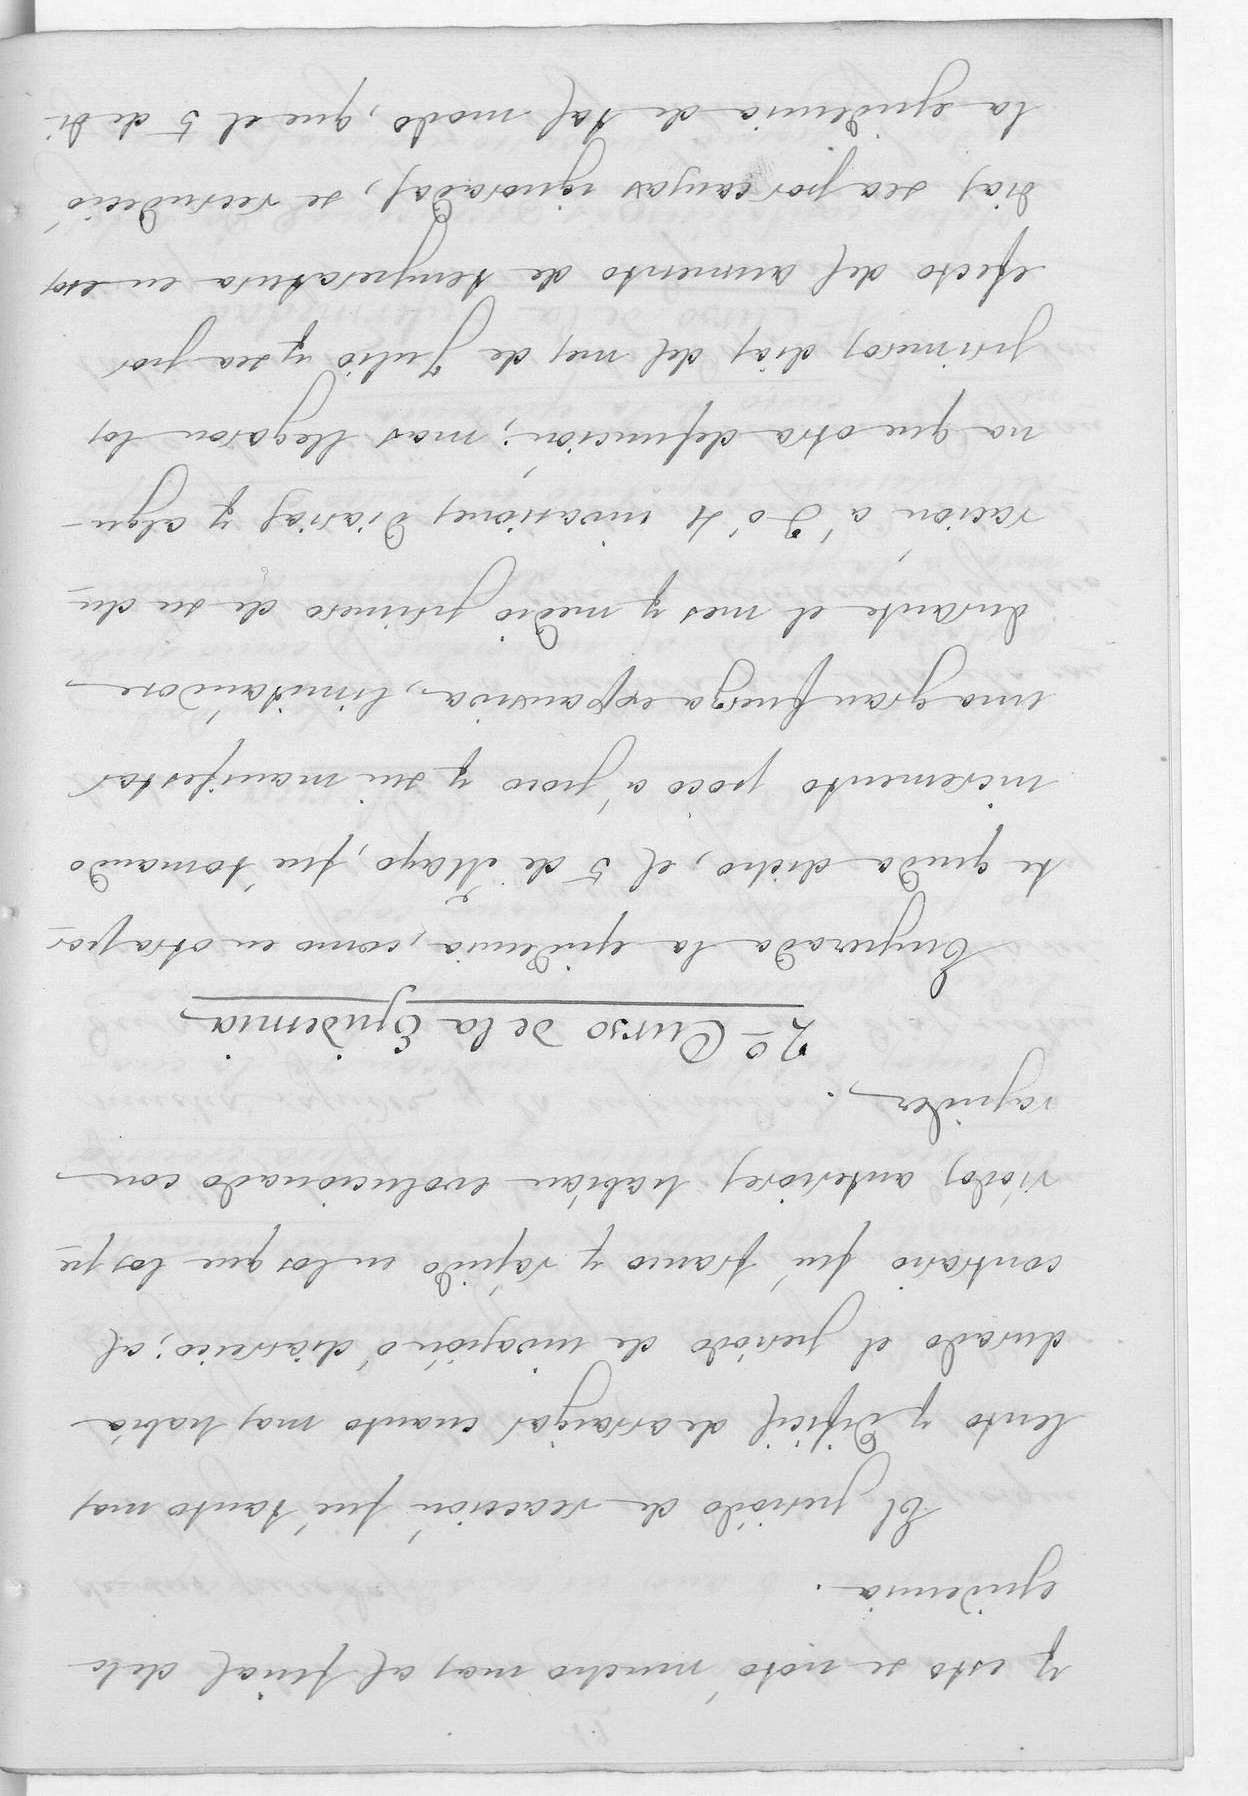 y esto se notó mucho mas al final de la
epidemia.
El periódo de reacción fué tanto mas
lento y dificil de arraigar cuanto mas habia
durado el periódo de invasión ó diarreico; al
contrario fué franco y rápido en los que los pe-
riódos anteriores habian evolucionado con
rapidez.
2º Curso de la Epidemia
Empezada la epidemia, como en otra par-
te queda dicho, el 5 de Mayo, fué tomando
incremento poco á poco y sin manifestar
una gran fuerza expansiva, limitándose
durante el mes y medio primero de su du-
ración á 3 ó 4 invasiones diarias y algu-
na que otra defunción; mas llegaron los
primeros dias del mes de Julio y sea por
efecto del aumento de temperatura en esos
dias sea por causas ignoradas, se recrudeció
la epidemia de tal modo, que el 5 de di-